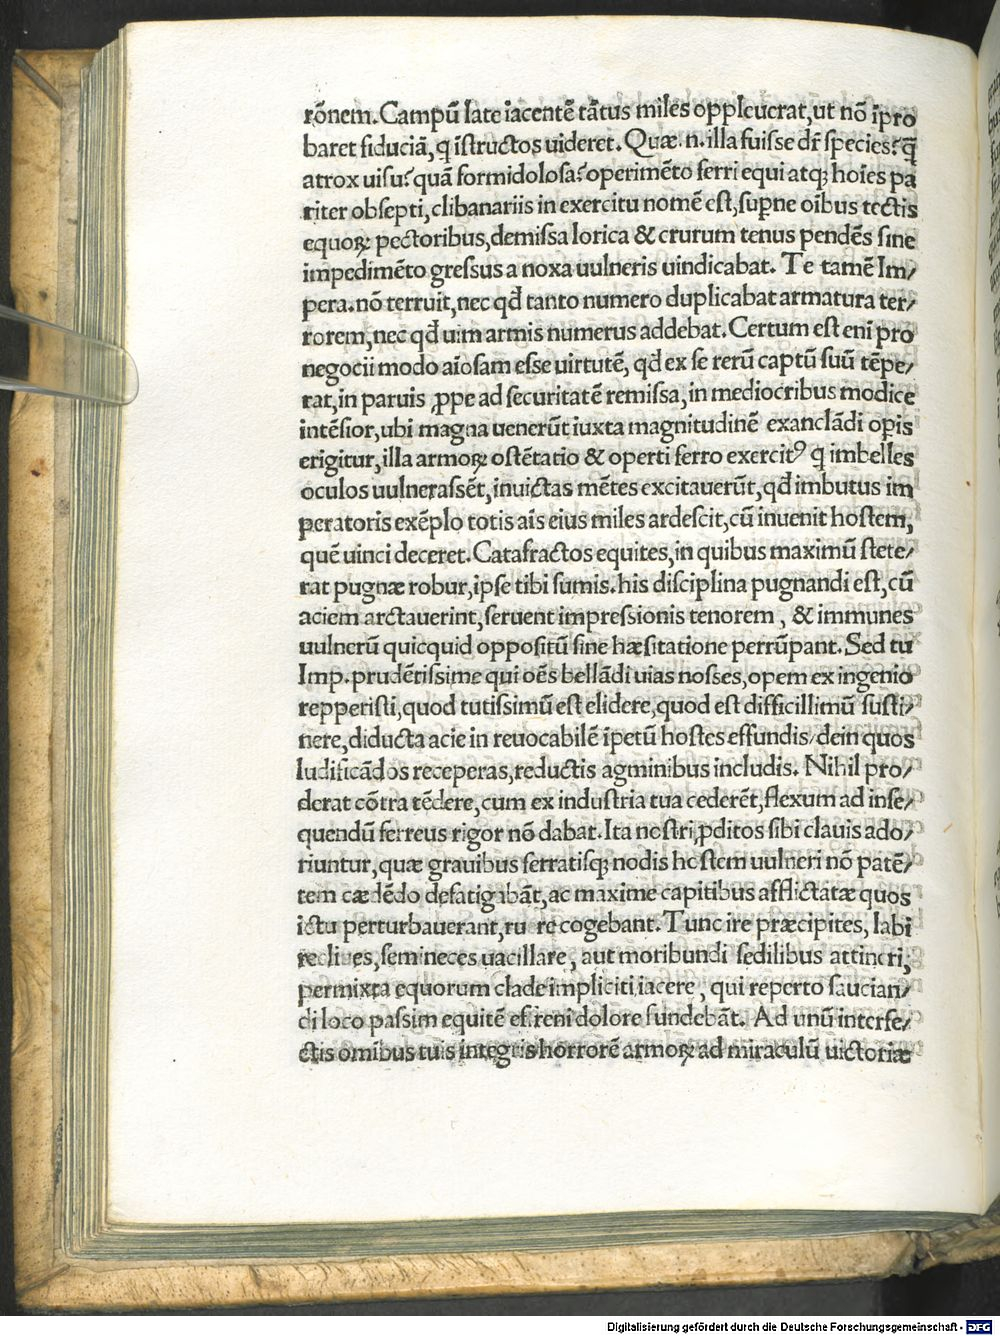 rõnem. Campũ late iacentẽ tãtus miles oppleuerat, ut nõ ĩpro
baret fiduciã, q̃ ĩstructos uideret. Quæ .n. illa fuisse dr̃ species? q̃
atrox uisu? quã formidolosa? operimẽto ferri equi atq; hoĩes pa
riter obsepti, clibanariis in exercitu nomẽ est, sup̱ne oĩbus tectis
equoꝝ pectoribus, demissa lorica & crurum tenus pendẽs sine
impedimẽto gressus a noxa uulneris uindicabat. Te tamẽ Im/
pera. nõ terruit, nec qđ tanto numero duplicabat armatura ter/
rorem, nec qđ uim armis numerus addebat. Certum est enĩ pro
negocii modo aĩosam esse uirtutẽ, qđ ex se rerũ captũ suũ tẽpe/
rat, in paruis ꝓpe ad securitatẽ remissa, in mediocribus modice
intẽsior, ubi magna uenerũt iuxta magnitudinẽ exanclãdi op̱is
erigitur, illa armoꝝ ostẽtatio & operti ferro exercitꝰ q̃ imbelles
oculos uulnerassẽt, inuictas mẽtes excitauerũt, qđ imbutus im
peratoris exẽplo totis aĩs eius miles ardescit, cũ inuenit hostem,
quẽ uinci deceret. Catafractos equites, in quibus maximũ stete/
rat pugnæ robur, ipse tibi sumis. his disciplina pugnandi est, cũ
aciem arctauerint, seruent impressionis tenorem, & immunes
uulnerũ quicquid oppositũ sine hæsitatione perrũpant. Sed tu
Imp. prudẽtissime qui oẽs bellãdi uias nosses, opem ex ingenio
repperisti, quod tutissimũ est elidere, quod est difficillimũ susti/
nere, diducta acie in reuocabilẽ ĩpetũ hostes effundis/ dein quos
ludificãdos receperas, reductis agminibus includis. Nihil pro/
derat cõtra tẽdere, cum ex industria tua cederẽt, flexum ad inse/
quendũ ferreus rigor nõ dabat. Ita nostri ꝓditos sibi clauis ado/
riuntur, quæ grauibus ferratisq; nodis hostem uulneri nõ patẽ/
tem cædẽdo defatigabãt, ac maxime capitibus afflictatæ quos
ictu perturbauerant, ruere cogebant. Tunc ire præcipites, labi
recliues, semineces uacillare, aut moribundi sedilibus attineri;
permixta equorum clade impliciti iacere, qui reperto saucian/
di loco passim equitẽ effreni dolore fundebãt. Ad unũ interfe/
ctis omĩbus tuis integris horrorẽ armoꝝ ad miraculũ uictoriæ
Digitalisierung gefördert durch die Deutsche Forschungsgemeinschaft - DFG